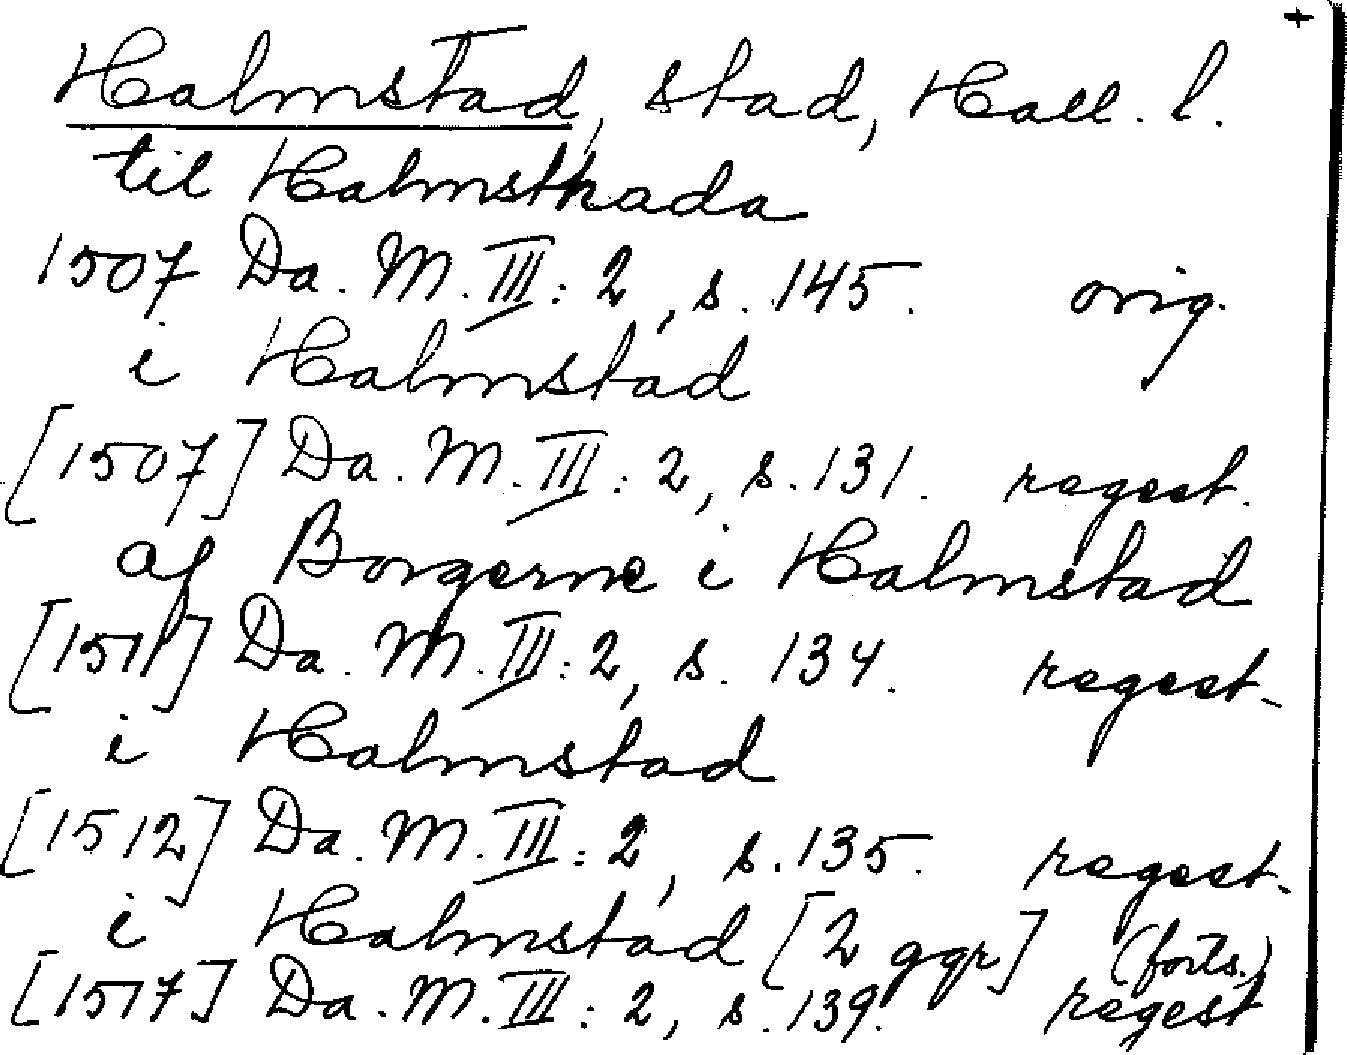 +
Halmstad, stad, Hall. l.
til Halmsthada
1507 Da. M. III: 2, s. 145. orig.
i Halmstad
[1507] Da. M. III: 2, s. 131. regest.
af Borgerne i Halmstad
[1511] Da. M. III: 2, s. 134. regest.
i Halmstad
[1512] Da. M. III: 2, s. 135. regest.
i Halmstad [2 ggr] (forts.)
[1517] Da. M. III: 2, s. 139. regest